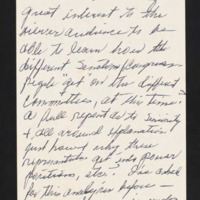 great interest to the
viewer audience to be
able to learn how the
different Senators/Congress
people "get" on the different
Committees, at this time?
A full report as to Seniority
& all around explanation
just how & why these
representatives get into power
positions, etc. I've asked
for this analysis before —